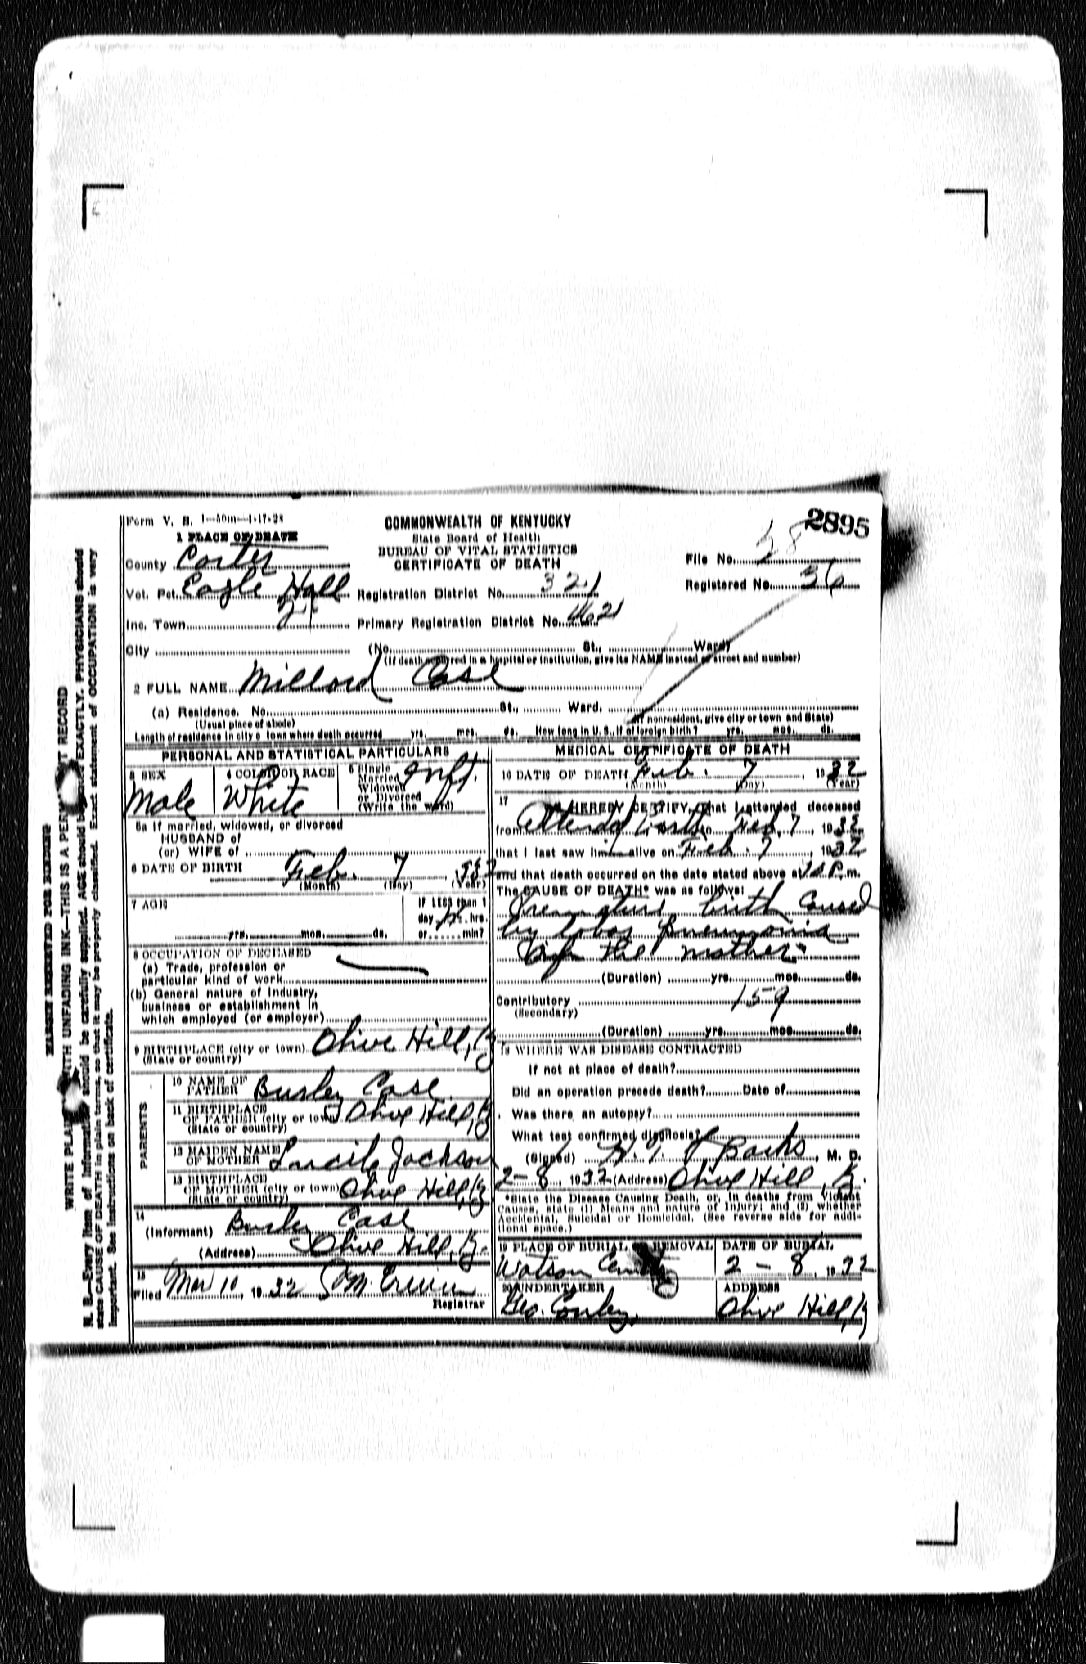 Form V. S. 1—50m—1-17-28
COMMONWEALTH OF KENTUCKY
2895
1 PLACE OF DEATH
State Board of Health
BUREAU OF VITAL STATISTICS
CERTIFICATE OF DEATH
County Carter
File No. 58
Vot. Pct. Eagle Hall
Registration District No. 321
Registered No. 36
Inc. Town
Primary Registration District No. 4621
City (No. St., Ward)
(If death occurred in a hospital or institution, give its NAME instead of street and number)
2 FULL NAME Millord Case
(a) Residence. No. St., Ward.
(Usual place of abode) (If nonresident, give city or town and State)
Length of residence in city or town where death occurred yrs. mos. ds. How long in U. S., if of foreign birth? yrs. mos. ds.
PERSONAL AND STATISTICAL PARTICULARS
3 SEX
Male
4 COLOR OR RACE
White
5 Single
Married
Widowed
or Divorced
(Write the word)
Inft.
5a If married, widowed, or divorced
HUSBAND of
(or) WIFE of
6 DATE OF BIRTH Feb. 7 1932
(Month) (Day) (Year)
7 AGE
yrs. mos. ds.
If LESS than 1
day 12 hrs.
or min?
8 OCCUPATION OF DECEASED
(a) Trade, profession or
particular kind of work
(b) General nature of industry,
business or establishment in
which employed (or employer)
9 BIRTHPLACE (city or town) Olive Hill, Ky
(State or country)
PARENTS
10 NAME OF FATHER Burley Case
11 BIRTHPLACE
OF FATHER (city or town) Olive Hill, Ky
(State or country)
12 MAIDEN NAME
OF MOTHER Lucile Jackson
13 BIRTHPLACE
OF MOTHER (city or town) Olive Hill, Ky
(State or country)
14
(Informant) Burley Case
(Address) Olive Hill, Ky.
15
Filed Mar 10, 1932
Registrar
MEDICAL CERTIFICATE OF DEATH
16 DATE OF DEATH Feb. 7, 1932
(Month) (Day) (Year)
17
I HEREBY CERTIFY, that I attended deceased
from Attended birth to Feb. 7, 1932
that I last saw him alive on Feb. 7, 1932
and that death occurred on the date stated above at P. m.
The CAUSE OF DEATH* was as follows:
Premature birth caused
by lobar pneumonia
of the mother
(Duration) yrs. mos. ds.
Contributory 159
(Secondary)
(Duration) yrs. mos. ds.
18 WHERE WAS DISEASE CONTRACTED
If not at place of death?
Did an operation precede death? Date of
Was there an autopsy?
What test confirmed diagnosis?
(Signed) M. D.
2-8, 1932 (Address) Olive Hill, Ky.
*State the Disease Causing Death, or, in deaths from Violent
Causes, state (1) Means and nature of Injury; and (2) whether
Accidental, Suicidal or Homicidal. (See reverse side for addi-
tional space.)
19 PLACE OF BURIAL OR REMOVAL
Watson Cemetery
DATE OF BURIAL
2 - 8, 1932
20 UNDERTAKER
Geo. Conley
ADDRESS
Olive Hill, Ky
MARGIN RESERVED FOR BINDING
WRITE PLAINLY, WITH UNFADING INK—THIS IS A PERMANENT RECORD
N. B.—Every item of information should be carefully supplied. AGE should be stated EXACTLY. PHYSICIANS should
state CAUSE OF DEATH in plain terms, so that it may be properly classified. Exact statement of OCCUPATION is very
important. See instructions on back of certificate.